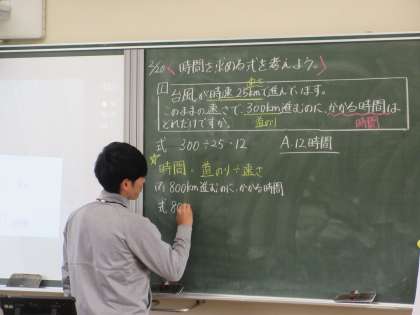 2/20 〈時間を求める式を考えよう。〉
1 台風が時速25kmで進んでいます。
速さ
このままの速さで、300km進むのに、かかる時間は
道のり
どれだけですか。
時間
式 300÷25=12 A.12時間
☆時間=道のり÷速さ
(1) 800km進むのに、かかる時間
式 80